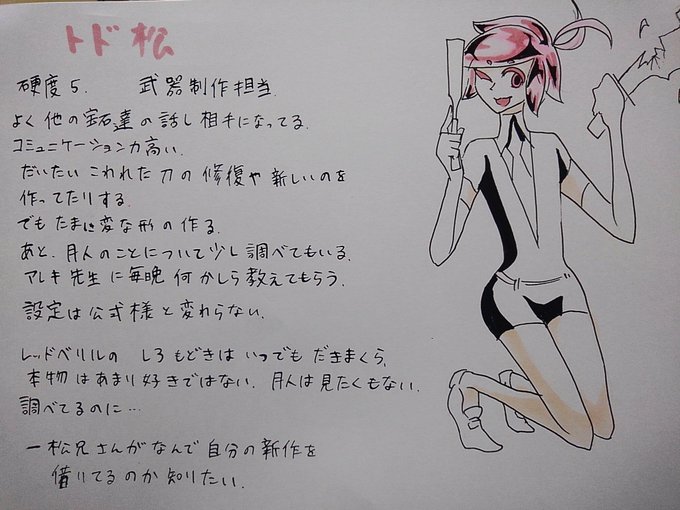 トド松
硬度5. 武器制作担当.
よく他の宝石達の話し相手になってる.
コミュニケーション力高い.
だいたいこわれた刀の修復や新しいのを
作ってたりする.
でもたまに変な形の作る.
あと、月人のことについて少し調べてもいる.
アレキ先生に毎晩何かしら教えてもらう.
設定は公式様と変わらない.
レッドベリルの しろもどきはいつでもだきまくら.
本物はあまり好きではない. 月人は見たくもない.
調べてるのに…
一松兄さんがなんで自分の新作を
借りてるのか知りたい.